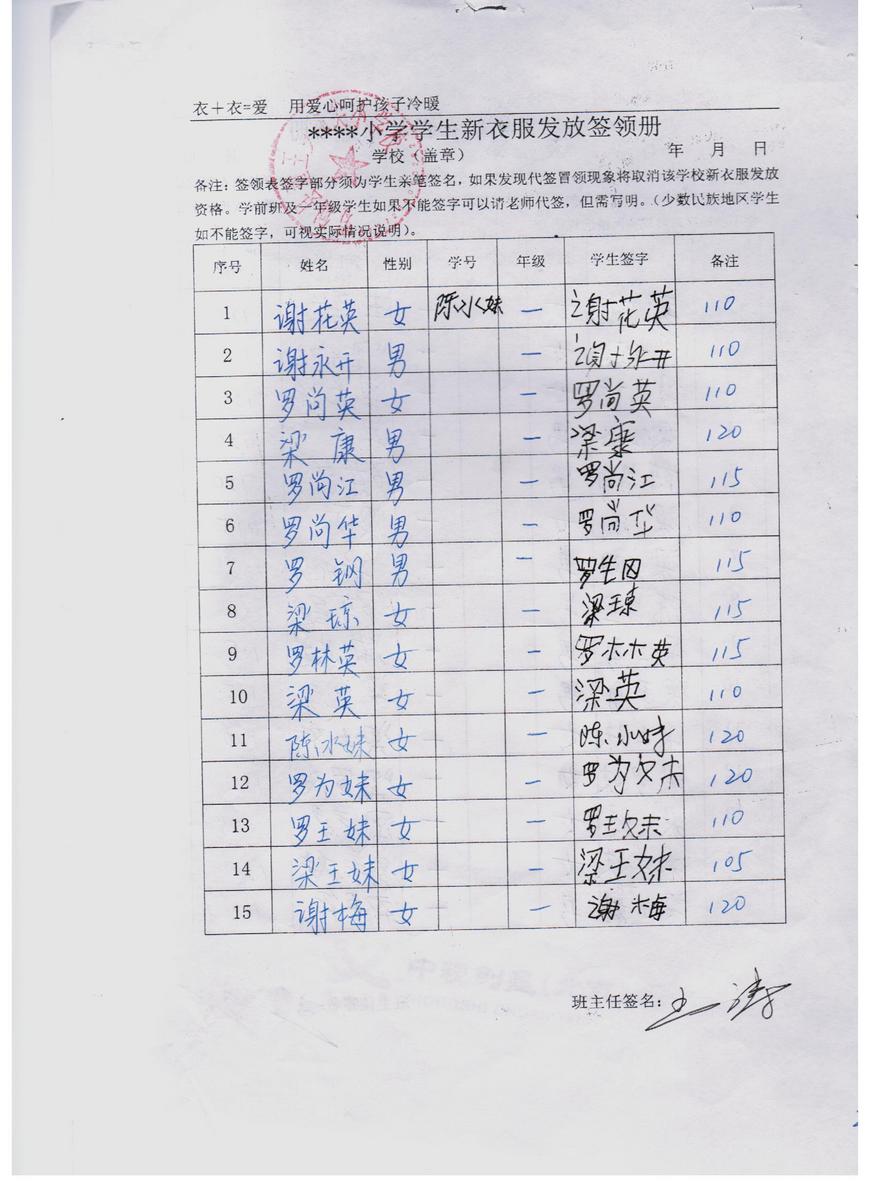 衣＋衣=爱 用爱心呵护孩子冷暖
****小学学生新衣服发放签领册
学校（盖章） 年 月 日
备注：签领表签字部分须为学生亲笔签名，如果发现代签冒领现象将取消该学校新衣服发放
资格。学前班及一年级学生如果不能签字可以请老师代签，但需写明。（少数民族地区学生
如不能签字，可视实际情况说明）。
序号 姓名 性别 学号 年级 学生签字 备注
1 谢花英 女 陈冰妹 一 谢花英 110
2 谢永开 男 一 110
3 罗尚英 女 一 罗尚英 110
4 梁康 男 一 梁康 120
5 罗尚江 男 一 罗尚江 115
6 罗尚华 男 一 罗尚华 110
7 罗钢 男 一 115
8 梁琼 女 一 梁琼 115
9 罗林英 女 一 罗林英 115
10 梁英 女 一 梁英 110
11 陈冰妹 女 一 120
12 罗为妹 女 一 罗为妹 120
13 罗王妹 女 一 罗王妹 110
14 梁王妹 女 一 梁王妹 105
15 谢梅 女 一 谢梅 120
班主任签名：